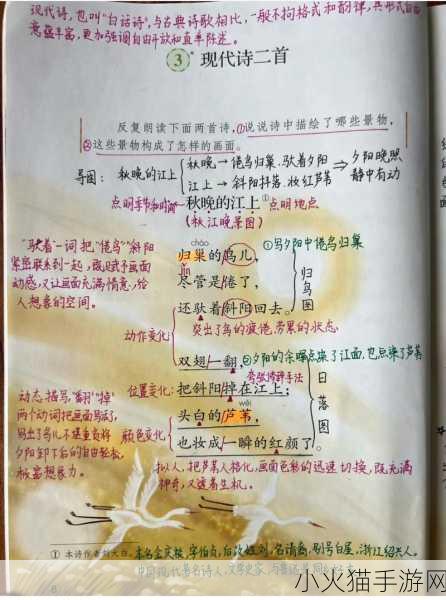 现代诗,也叫"白话诗",与古典诗歌相比,一般不拘格式和韵律,其形式自由
意蕴丰富,更加强调自由开放和直率陈述。
3 现代诗二首
反复朗读下面两首诗,①说说诗中描绘了哪些景物,
②这些景物构成了怎样的画面。
导图: 秋晚的江上
秋晚→倦鸟归巢、驮着夕阳
江上→斜阳抖落、妆红芦苇
⇒夕阳晚照
静中有动
点明季节和时间
秋晚的江上①
点明地点
(秋江晚景图)
"驮着"一词把"倦鸟""斜阳"
紧密联系到一起,既赋予画面
动感,又让画面充满情意,给
人想象的空间。
cháo
归巢的鸟儿,
①写夕阳中倦鸟归巢
尽管是倦了,
还驮着斜阳回去。
归鸟图
突出了鸟的疲倦、劳累的状态
动作变化
双翅一翻,
②夕阳的余晖点染了江面,也点染了芦苇
夸张修辞手法
位置变化:
把斜阳掉在江上;
wěi
头白的芦苇,
颜色变化
也妆成一瞬的红颜了。
日落图
动态描写,"翻""掉"
两个动词把画面写活了,
写出了鸟儿不堪重负将
夕阳卸下后的自由轻松,
极富想象力。
拟人,把芦苇人格化,画面色彩的迅速切换,既充满
神奇,又透着生机。
① 本诗作者刘大白。本名金庆棪,字伯贞,后改姓刘,名靖裔,别号白屋,浙江绍兴人。
中国现代著名诗人,文学史家,与鲁迅是同乡好友
6
小火猫手游网